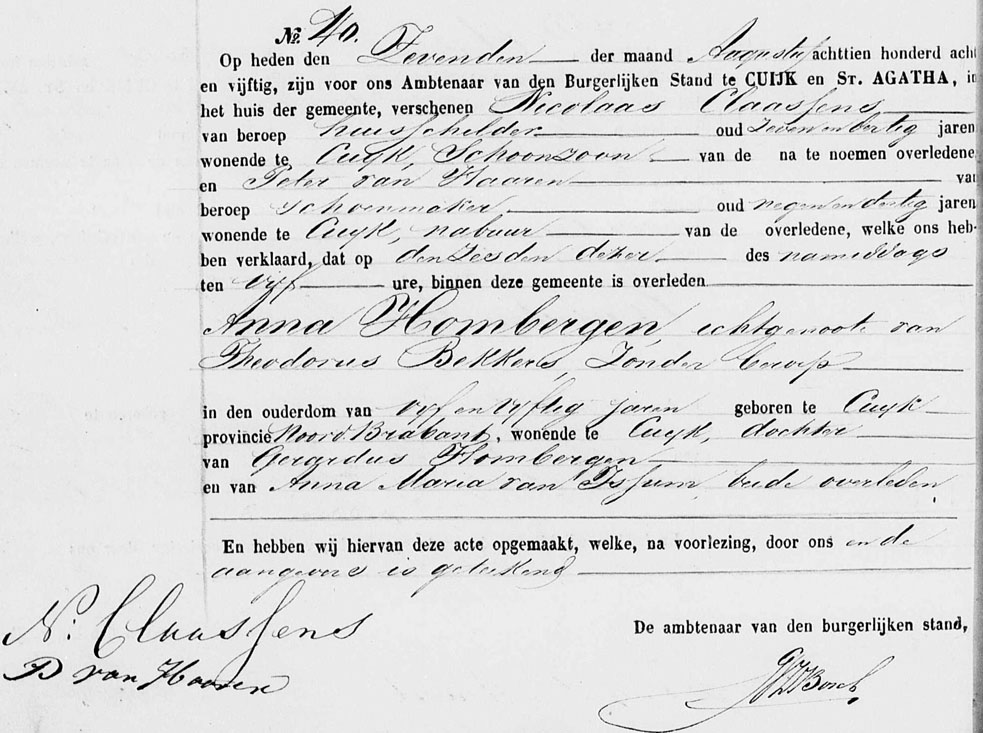 No. 40.
Op heden den Zevenden der maand Augustus achttien honderd acht
en vijftig, zijn voor ons Ambtenaar van den Burgerlijken Stand te CUIJK en ST. AGATHA, in
het huis der gemeente, verschenen Nicolaas Claassens
van beroep huisschilder oud zeven en dertig jaren
wonende te Cuyk, Schoonzoon van de na te noemen overledene
en Peter van Haaren van
beroep schoenmaker, oud negen en dertig jaren
wonende te Cuyk, nabuur van de overledene, welke ons heb-
ben verklaard, dat op den zesden dezer des namiddags
ten vyf ure, binnen deze gemeente is overleden
Anna Hombergen, echtgenoote van
Theodorus Bekkers, Zonder beroep
in den ouderdom van vyf en vyftig jaren geboren te Cuyk
provincie Noord Brabant, wonende te Cuyk, dochter
van Gerardus Hombergen
en van Anna Maria van Issum, beide overleden
En hebben wij hiervan deze acte opgemaakt, welke, na voorlezing, door ons en de
aangevers is geteekend
N. Claassens
P van Haaren
De ambtenaar van den burgerlijken stand,
Bosch